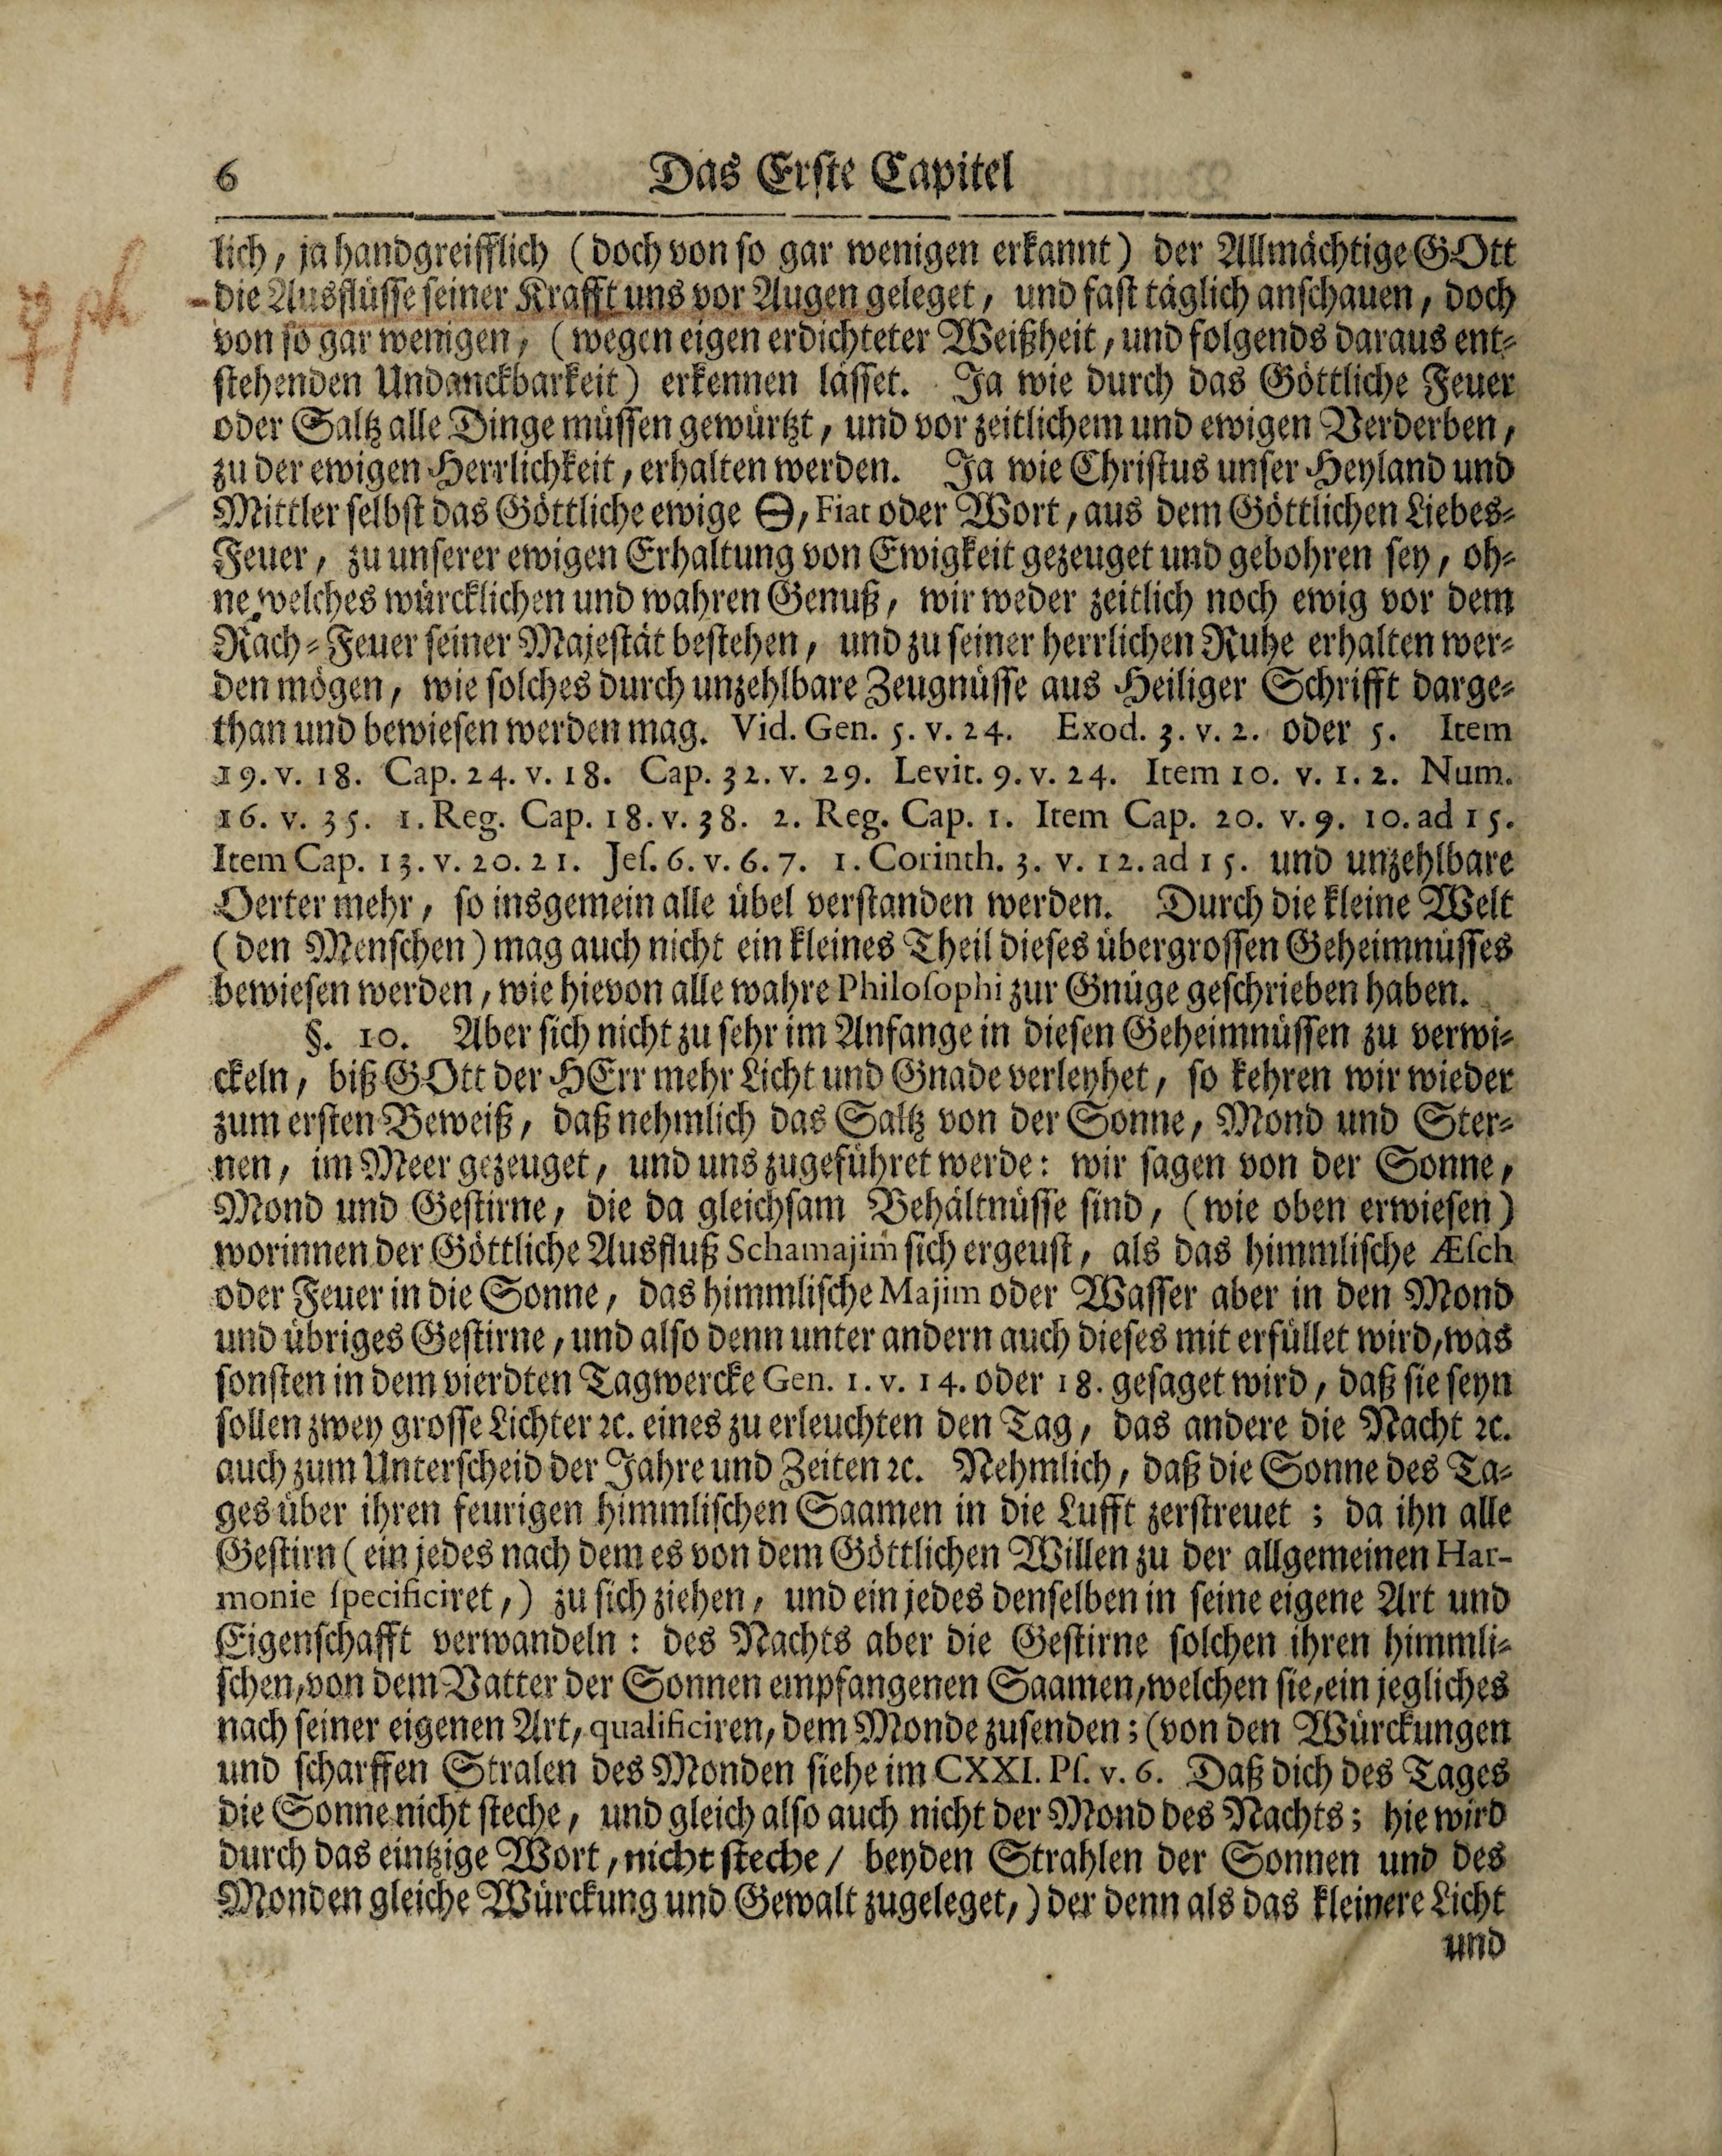 6 Das Erste Capitel
lich, ja handgreifflich (doch von so gar wenigen erkannt) der Allmächtige GOtt
die Ausflüsse seiner Krafft uns vor Augen geleget, und fast täglich anschauen, doch
von so gar wenigen, (wegen eigen erdichteter Weißheit, und folgends daraus ent-
stehenden Undanckbarkeit) erkennen lässet. Ja wie durch das Göttliche Feuer
oder Saltz alle Dinge müssen gewürtzt, und vor zeitlichem und ewigen Verderben,
zu der ewigen Herrlichkeit, erhalten werden. Ja wie Christus unser Heyland und
Mittler selbst das Göttliche ewige Θ, Fiat oder Wort, aus dem Göttlichen Liebes-
Feuer, zu unserer ewigen Erhaltung von Ewigkeit gezeuget und gebohren sey, oh-
ne welches würcklichen und wahren Genuß, wir weder zeitlich noch ewig vor dem
Rach-Feuer seiner Majestät bestehen, und zu seiner herrlichen Ruhe erhalten wer-
den mögen, wie solches durch unzehlbare Zeugnüsse aus Heiliger Schrifft darge-
than und bewiesen werden mag. Vid. Gen. 5. v. 24. Exod. 3. v. 2. oder 5. Item
19. v. 18. Cap. 24. v. 18. Cap. 32. v. 29. Levit. 9. v. 24. Item 10. v. 1. 2. Num.
16. v. 35. 1. Reg. Cap. 18. v. 38. 2. Reg. Cap. 1. Item Cap. 20. v. 9. 10. ad 15.
Item Cap. 13. v. 20. 21. Jes. 6. v. 6. 7. 1. Corinth. 3. v. 12. ad 15. und unzehlbare
Oerter mehr, so insgemein alle übel verstanden werden. Durch die kleine Welt
(den Menschen) mag auch nicht ein kleines Theil dieses übergrossen Geheimnüsses
bewiesen werden, wie hievon alle wahre Philosophi zur Gnüge geschrieben haben.
§. 10. Aber sich nicht zu sehr im Anfange in diesen Geheimnüssen zu verwi-
ckeln, biß GOtt der HErr mehr Licht und Gnade verleyhet, so kehren wir wieder
zum ersten Beweiß, daß nehmlich das Saltz von der Sonne, Mond und Ster-
nen, im Meer gezeuget, und uns zugeführet werde: wir sagen von der Sonne,
Mond und Gestirne, die da gleichsam Behältnüsse sind, (wie oben erwiesen)
worinnen der Göttliche Ausfluß Schamajim sich ergeust, als das himmlische Æsch
oder Feuer in die Sonne, das himmlische Majim oder Wasser aber in den Mond
und übriges Gestirne, und also denn unter andern auch dieses mit erfüllet wird, was
sonsten in dem vierdten Tagwercke Gen. 1. v. 14. oder 18. gesaget wird, daß sie seyn
sollen zwey grosse Lichter ꝛc. eines zu erleuchten den Tag, das andere die Nacht ꝛc.
auch zum Unterscheid der Jahre und Zeiten ꝛc. Nehmlich, daß die Sonne des Ta-
ges über ihren feurigen himmlischen Saamen in die Lufft zerstreuet; da ihn alle
Gestirn (ein jedes nach dem es von dem Göttlichen Willen zu der allgemeinen Har-
monie specificiret,) zu sich ziehen, und ein jedes denselben in seine eigene Art und
Eigenschafft verwandeln: des Nachts aber die Gestirne solchen ihren himmli-
schen, von dem Vatter der Sonnen empfangenen Saamen, welchen sie, ein jegliches
nach seiner eigenen Art, qualificiren, dem Monde zusenden; (von den Würckungen
und scharffen Stralen des Monden siehe im CXXI. Ps. v. 6. Daß dich des Tages
die Sonne nicht steche, und gleich also auch nicht der Mond des Nachts; hie wird
durch das eintzige Wort, nicht steche / beyden Strahlen der Sonnen und des
Monden gleiche Würckung und Gewalt zugeleget,) der denn als das kleinere Licht
und